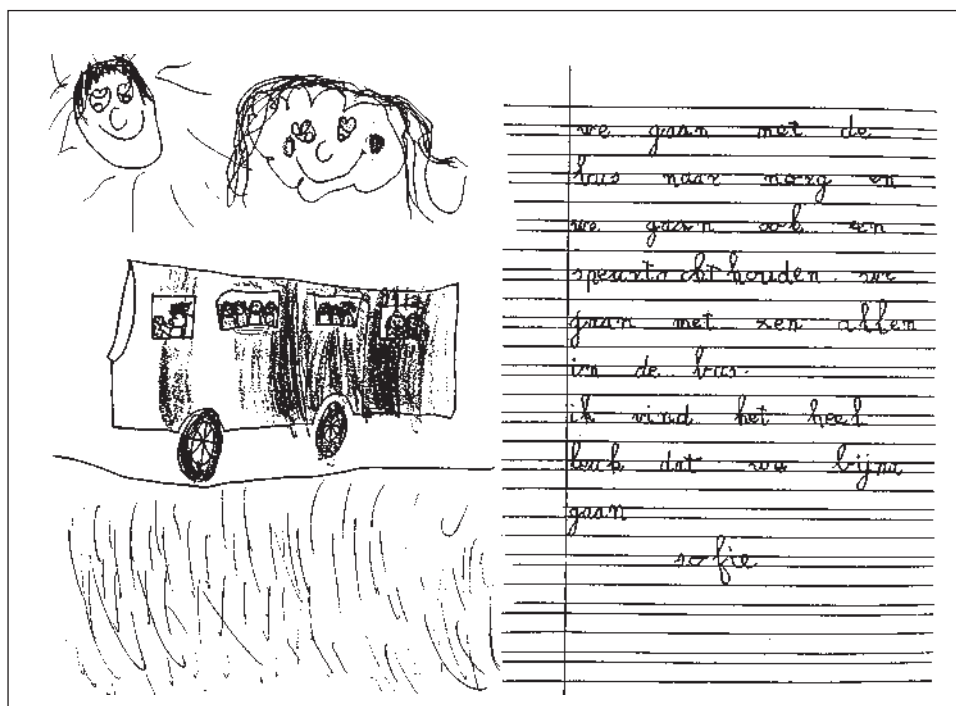 we gaan met de
bus naar norg en
we gaan ook een
speurtocht houden. we
gaan met zen allen
in de bus.
ik vind het heel
leuk dat we bijna
gaan
sofie